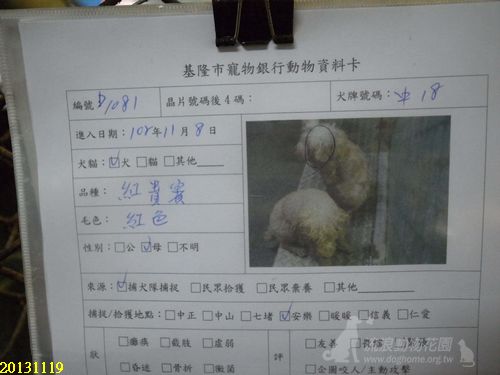 基隆市寵物銀行動物資料卡
編號 D1081 晶片號碼後4碼： 犬牌號碼： 中 18
進入日期：102年11月8日
犬貓：☑犬 □貓 □其他
品種： 紅貴賓
毛色： 紅色
性別：□公 ☑母 □不明
來源：☑捕犬隊捕捉 □民眾拾獲 □民眾棄養 □其他
捕捉/拾獲地點：□中正 □中山 □七堵 ☑安樂 □暖暖 □信義 □仁愛
狀 □癱瘓 □截肢 □虛弱 評 □友善
□昏迷 □骨折 □黴菌 □企圖咬人/主動攻擊
流浪動物花園
www.doghome.org.tw
20131119